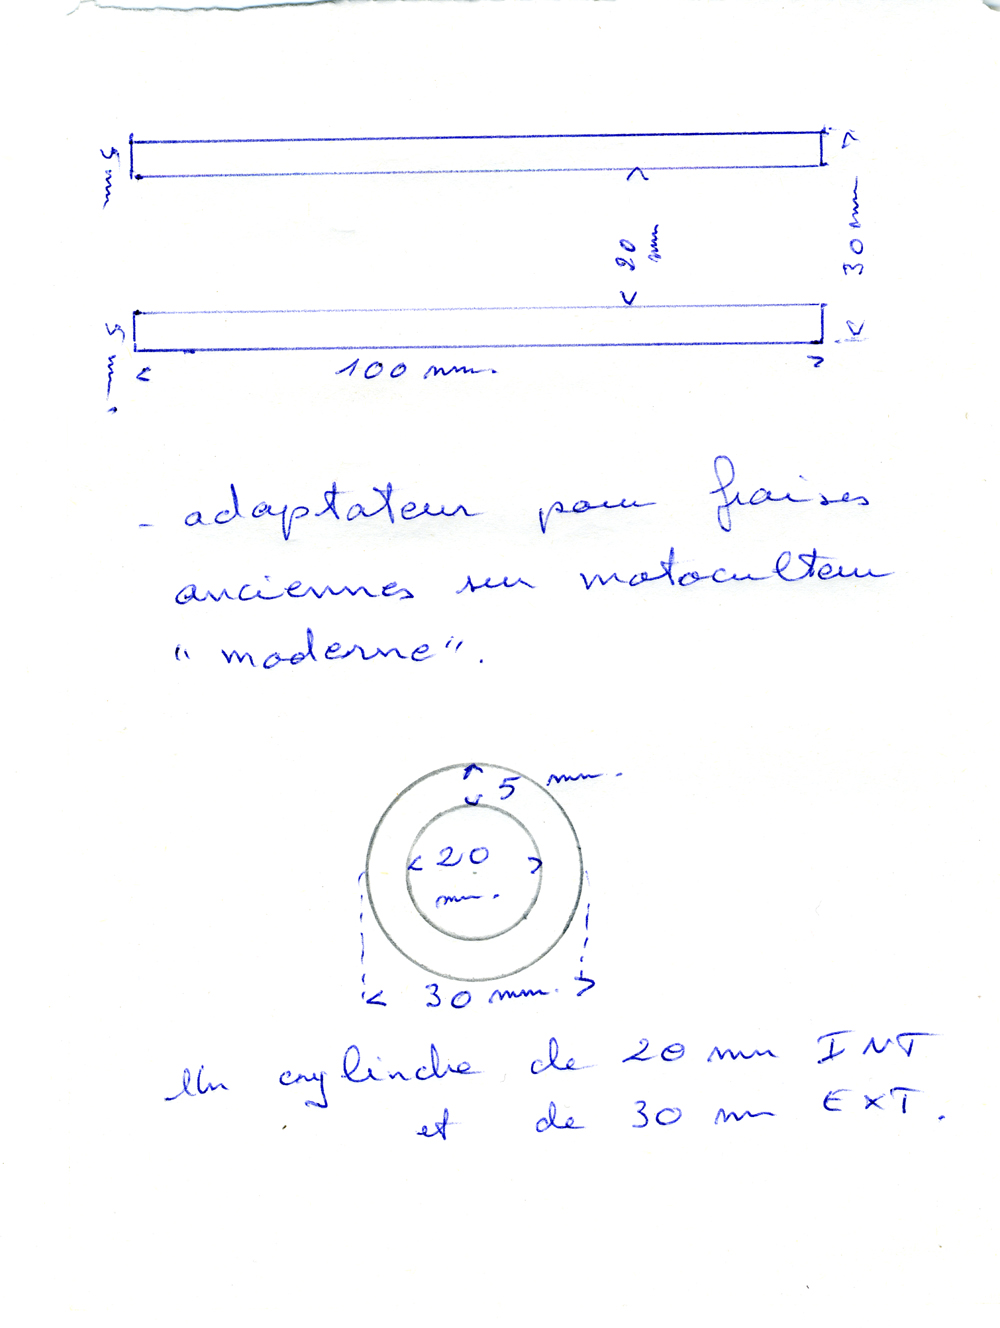 5 mm
20 mm
30 mm
5 mm.
100 mm.
- adaptateur pour fraises
anciennes sur motoculteur
" moderne ".
5 mm.
20
mm.
30 mm.
Un cylindre de 20 mm INT
et de 30 mm EXT.